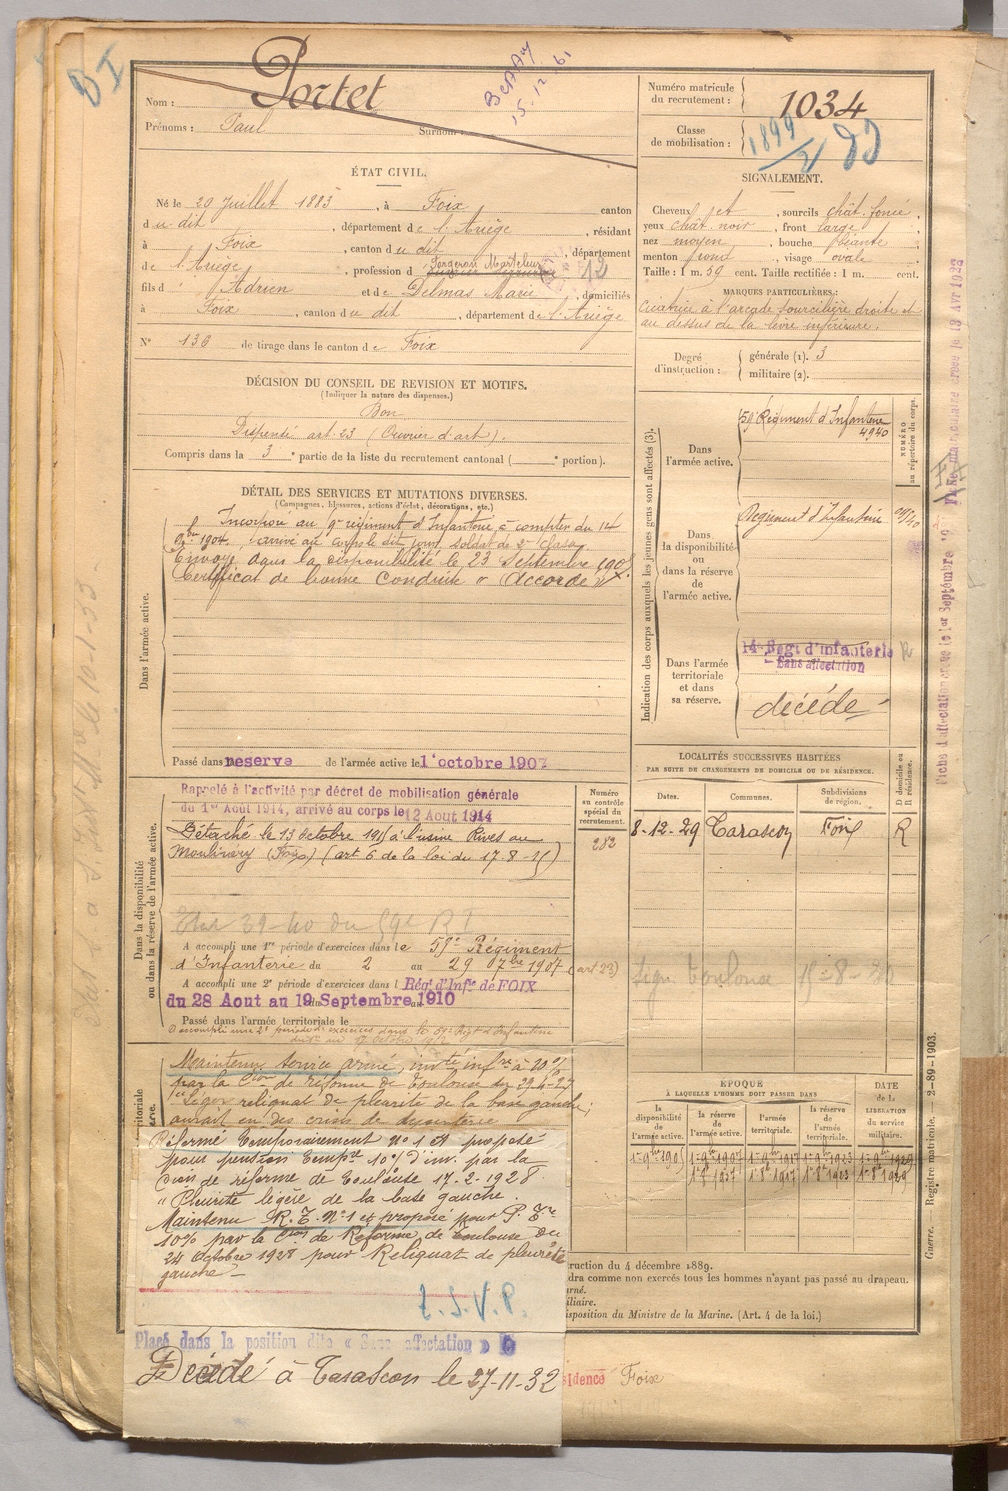 B I
Nom : Portet
Prénoms : Paul Surnom :
15.12.61
Numéro matricule
du recrutement : 1034
Classe
de mobilisation : 1899
ÉTAT CIVIL.
Né le 20 Juillet 1883, à Foix canton
du dit, département de l'Ariège, résidant
à Foix, canton du dit, département
de l'Ariège, profession de Forgeron Marteleur 12
fils d' Adrien et de Delmas Marie, domiciliés
à Foix, canton du dit, département de l'Ariège
N° 136 de tirage dans le canton de Foix
SIGNALEMENT.
Cheveux et, sourcils chât. foncé,
yeux chât. noir, front large
nez moyen, bouche béante
menton rond, visage ovale
Taille : 1 m. 59 cent. Taille rectifiée : 1 m. cent.
MARQUES PARTICULIÈRES :
Cicatrice à l'arcade sourcilière droite et
au dessus de la lèvre inférieure.
Degré
d'instruction :
générale (1). 3
militaire (2).
DÉCISION DU CONSEIL DE REVISION ET MOTIFS.
(Indiquer la nature des dispenses.)
Bon
Dispensé art. 23 (Ouvrier d'art).
Compris dans la 3e partie de la liste du recrutement cantonal ( e portion).
DÉTAIL DES SERVICES ET MUTATIONS DIVERSES.
(Campagnes, blessures, actions d'éclat, décorations, etc.)
Dans l'armée active.
Incorporé au 9e régiment d'Infanterie à compter du 14
9bre 1904, arrivé au corps le dit jour, soldat de 2e classe
Envoyé dans la disponibilité le 23 Septembre 1905.
Certificat de bonne Conduite « Accordé »
Passé dans réserve de l'armée active le 1er octobre 1907
Indication des corps auxquels les jeunes gens sont affectés (3).
NUMÉRO
au répertoire du corps.
Dans
l'armée active.
59e Régiment d'Infanterie
4940
Dans
la disponibilité
ou
dans la réserve
de
l'armée active.
Régiment d'Infanterie
Dans l'armée
territoriale
et dans
sa réserve.
14e Regt d'infanterie R
Sans affectation
décédé
Fiche d'affectation créée le 1er Septembre 19 Fiche matriculaire créée le 13 Avr 192
Dans la disponibilité
ou dans la réserve de l'armée active.
Rappelé à l'activité par décret de mobilisation générale
du 1er Aout 1914, arrivé au corps le 12 Aout 1914
Détaché le 13 Octobre 1915 à l'usine Rives au
Moulinery (Foix) (art 6 de la loi du 17-8-15)
Etat 39-40 du 59e R I
A accompli une 1re période d'exercices dans le 59e Régiment
d'Infanterie du 2 au 29 7bre 1907 (art 23)
A accompli une 2e période d'exercices dans l Régt d'Infie de FOIX
du 28 Aout au 19 Septembre 1910
Passé dans l'armée territoriale le
A accompli une 2e période d'exercices dans le 59e Régt d'Infanterie
Numéro
au contrôle
spécial du
recrutement.
282
LOCALITÉS SUCCESSIVES HABITÉES
PAR SUITE DE CHANGEMENTS DE DOMICILE OU DE RÉSIDENCE.
D domicile ou
R résidence.
Dates. Communes. Subdivisions
de région.
8-12-29 Tarascon Foix R
Toulouse
ÉPOQUE
À LAQUELLE L'HOMME DOIT PASSER DANS
DATE
de la
LIBÉRATION
du
service
militaire.
la
disponibilité
de
l'armée active.
la réserve
de
l'armée active.
l'armée
territoriale.
la réserve
de
l'armée
territoriale.
Maintenu service armé, invté infre à 10%
par la Con de réforme de Toulouse du 29-4-27
"Léger reliquat de pleurite de la base gauche;
aurait eu des crises de dysenterie
Réformé temporairement N° 1 et proposé
pour pension tempre 10% d'inv. par la
Con de réforme de Toulouse 17-2-1928
"Pleurite légère de la base gauche.
Maintenu R.T. N°1 et proposé pour P. Tre
10% par la Con de Réforme de Toulouse du
24 Octobre 1928 pour Reliquat de pleurite
gauche —
T.S.V.P.
Placé dans la position dite « Sans affectation »
Décédé à Tarascon le 27-11-32
ruction du 4 décembre 1889.
dra comme non exercés tous les hommes n'ayant pas passé au drapeau.
urné.
iliaire.
isposition du Ministre de la Marine. (Art. 4 de la loi.)
sidence Foix
Guerre. Registre matricule. 2-89-1903.